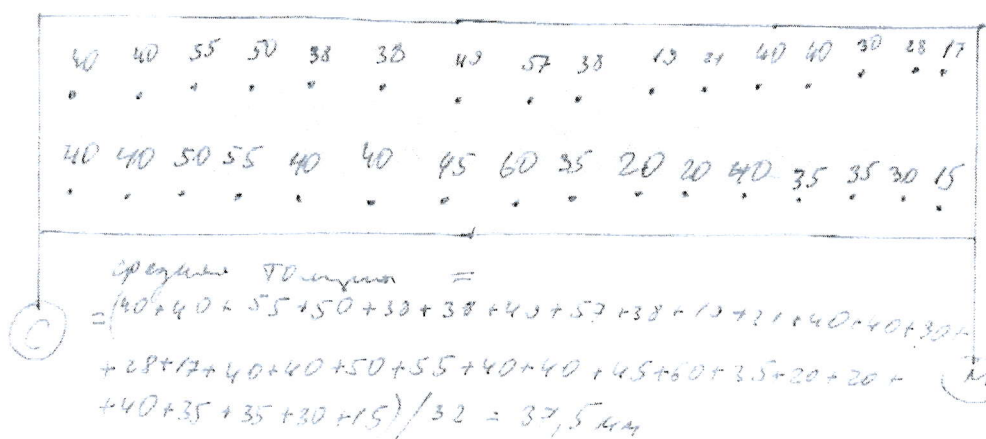 40 40 55 50 38 38 49 57 38 19 21 40 40 30 28 17
40 40 50 55 40 40 45 60 35 20 20 40 35 35 30 15
средняя толщина =
=(40+40+55+50+38+38+49+57+38+19+21+40+40+30+
С
+28+17+40+40+50+55+40+40+45+60+35+20+20+
+40+35+35+30+15)/32 = 37,5 мм